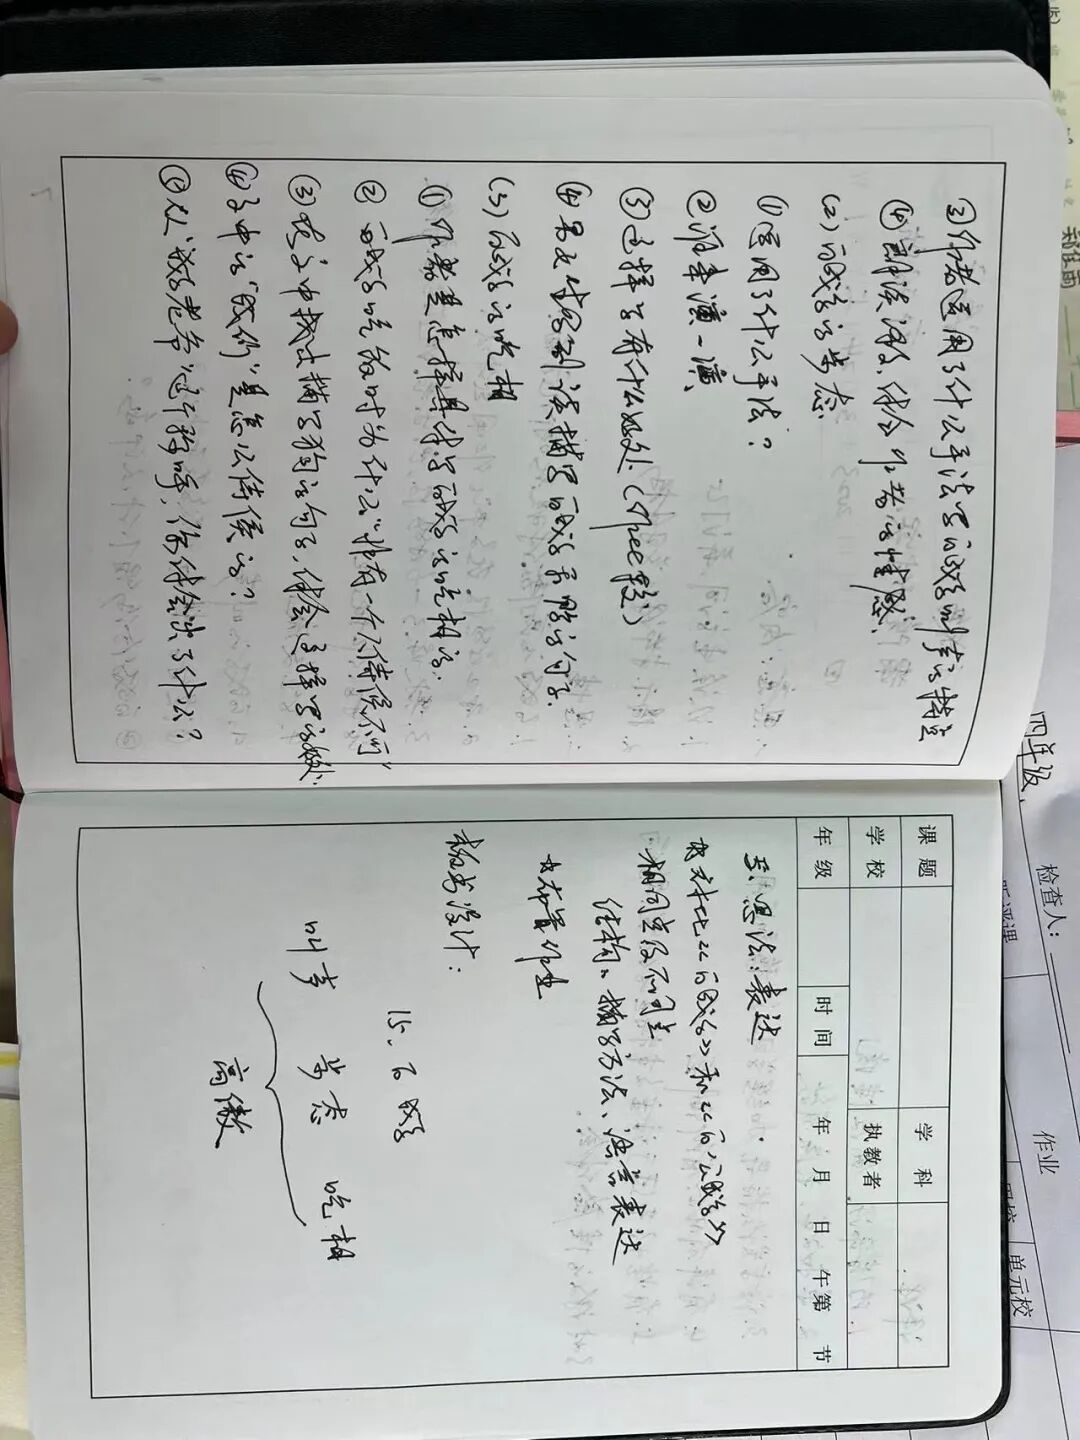 ③作者运用了什么手法写白鹅叫声的特点
④朗读课文,体会作者的情感。
(2)白鹅的步态
①运用了什么手法?
②谁来演一演、
③这样写有什么好处
④男女生分别读描写白鹅的句子.
(3)白鹅的吃相
①作者是怎样具体写白鹅的吃相的.
②白鹅吃饭时为什么“非有一个人侍候不可”
③从文中找出描写狗的句子,体会这样写的好处.
④文中的“我们”是怎么侍候的?
⑤从“鹅老爷”这个称呼,你体会出了什么?
课题
学科
学校
执教者
年级
时间
年 月 日 午第 节
五.思法:表达
对比《白鹅》和《白公鹅》
相同点及不同点
结构、描写方法、语言表达
布置作业
板书设计:
15.白鹅
叫声 步态 吃相
高傲
四年级、
检查人:
听评课
作业
单元校